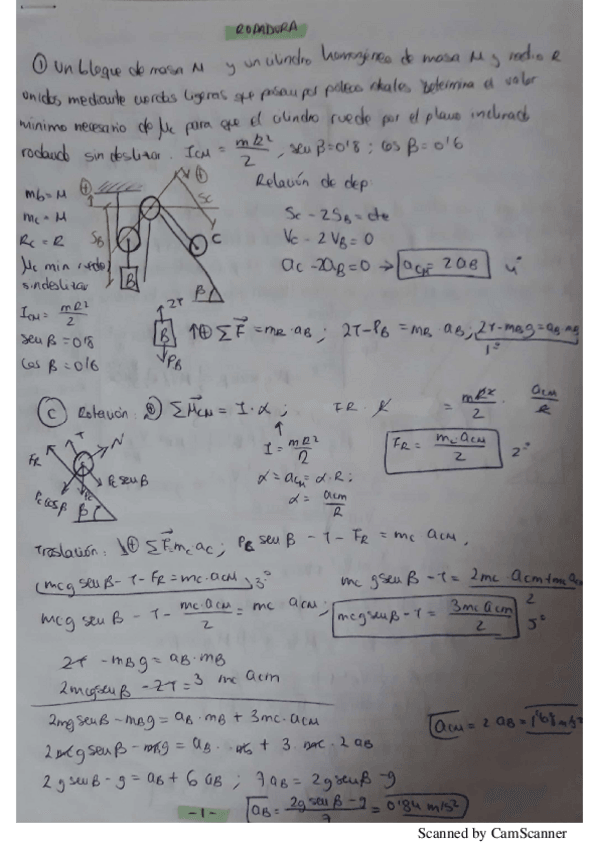 RODADURA
① Un bloque de masa M y un cilindro homogéneo de masa M y radio R
unidos mediante cuerdas ligeras que pasan por poleas ideales. Determina el valor
mínimo necesario de μc para que el cilindro ruede por el plano inclinado
rodando sin deslizar. ICM = mR²/2, senβ = 0'8 ; cosβ = 0'6
Relación de dep.
mb = M
mc = M
Rc = R
μc min rueda
sin deslizar
ICM = mR²/2
senβ = 0'8
cosβ = 0'6
SB
Sc
C
B
β
Sc - 2SB = cte
Vc - 2VB = 0
ac - 2aB = 0 → aCM = 2aB 4º
2T
B
PB
↑⊕ ΣF = mB·aB ; 2T - PB = mB·aB ; 2T - mBg = aB·mB
1º
Ⓒ Rotación: ΣMCM = I·α ; FR·R = mR²/2 · aCM/R
I = mR²/2
α = aCM = α·R ;
α = aCM/R
FR = mc·aCM/2 2º
FR
T
N
Pc senβ
Pc cosβ
β
Traslación: ⊕ ΣF = mc·ac ; PB senβ - T - FR = mc aCM ,
mcg senβ - T - FR = mc·aCM 3º
mcg senβ - T - mc·aCM/2 = mc aCM ;
mc g senβ - T = 2mc·aCM + m aCM/2
mcg senβ - T = 3mc aCM/2 5º
2T - mBg = aB·mB
2mcg senβ - 2T = 3 mc aCM
2mg senβ - mBg = aB·mB + 3mc·aCM
2mcg senβ - mg = aB·mB + 3·mc·2aB
2g senβ - g = aB + 6aB ; 7aB = 2g senβ - g
aB = 2g senβ - g/7 = 0'84 m/s²
aCM = 2aB = 1'68 m/s²
-1-
Scanned by CamScanner